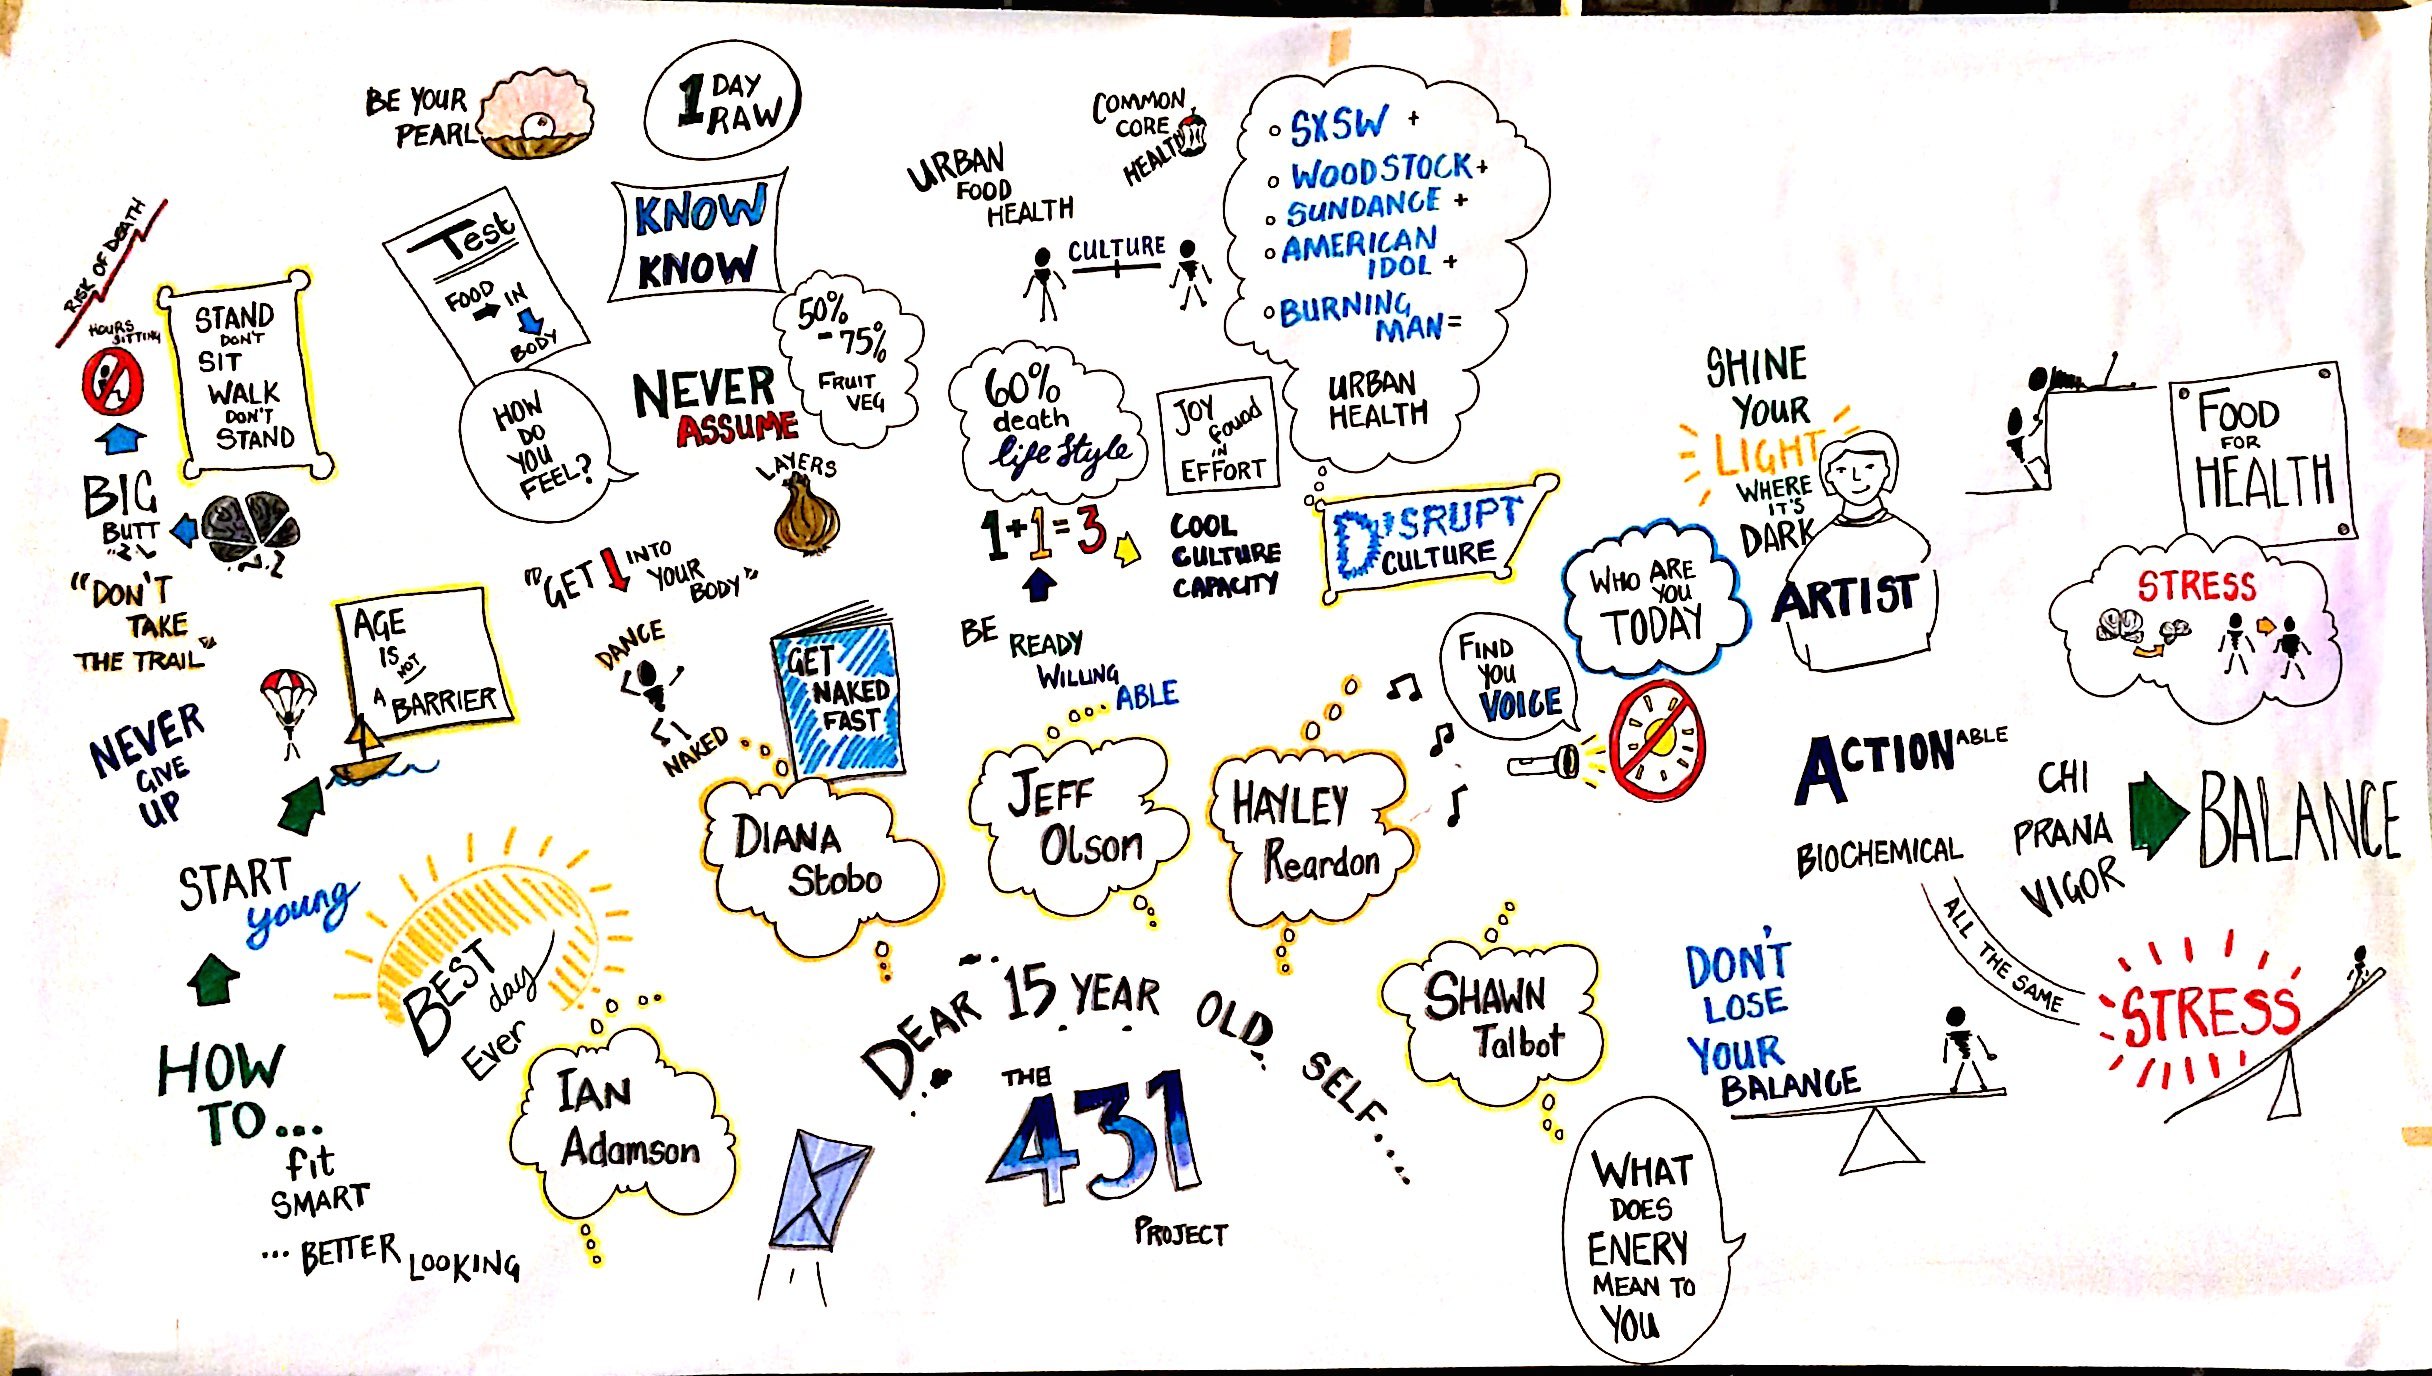 BE YOUR
PEARL
1 DAY
RAW
RISK OF DEATH
HOURS
SITTING
STAND
DON'T
SIT
WALK
DON'T
STAND
BIG
BUTT
"DON'T
TAKE
THE TRAIL"
Test
FOOD
IN
BODY
HOW
DO
YOU
FEEL?
KNOW
KNOW
NEVER
ASSUME
50%
-75%
FRUIT
VEG
LAYERS
"GET INTO
YOUR
BODY"
DANCE
NAKED
GET
NAKED
FAST
DIANA
Stobo
AGE
IS NOT
A BARRIER
NEVER
GIVE
UP
START
young
HOW
TO...
fit
SMART
... BETTER LOOKING
BEST
day
Ever
IAN
Adamson
URBAN
FOOD
HEALTH
COMMON
CORE
HEALTH
CULTURE
SXSW +
WOODSTOCK+
SUNDANCE +
AMERICAN
IDOL +
BURNING
MAN=
URBAN
HEALTH
60%
death
life style
JOY
found
IN
EFFORT
1+1=3
COOL
CULTURE
CAPACITY
DISRUPT
CULTURE
BE
READY
WILLING
ABLE
JEFF
Olson
HAYLEY
Reardon
FIND
YOU
VOICE
WHO ARE
YOU
TODAY
SHINE
YOUR
LIGHT
WHERE
IT'S
DARK
ARTIST
DEAR 15 YEAR OLD SELF....
THE
431
PROJECT
SHAWN
Talbot
WHAT
DOES
ENERY
MEAN TO
YOU
FOOD
FOR
HEALTH
STRESS
ACTIONABLE
BIOCHEMICAL
CHI
PRANA
VIGOR
BALANCE
ALL THE SAME
STRESS
DON'T
LOSE
YOUR
BALANCE